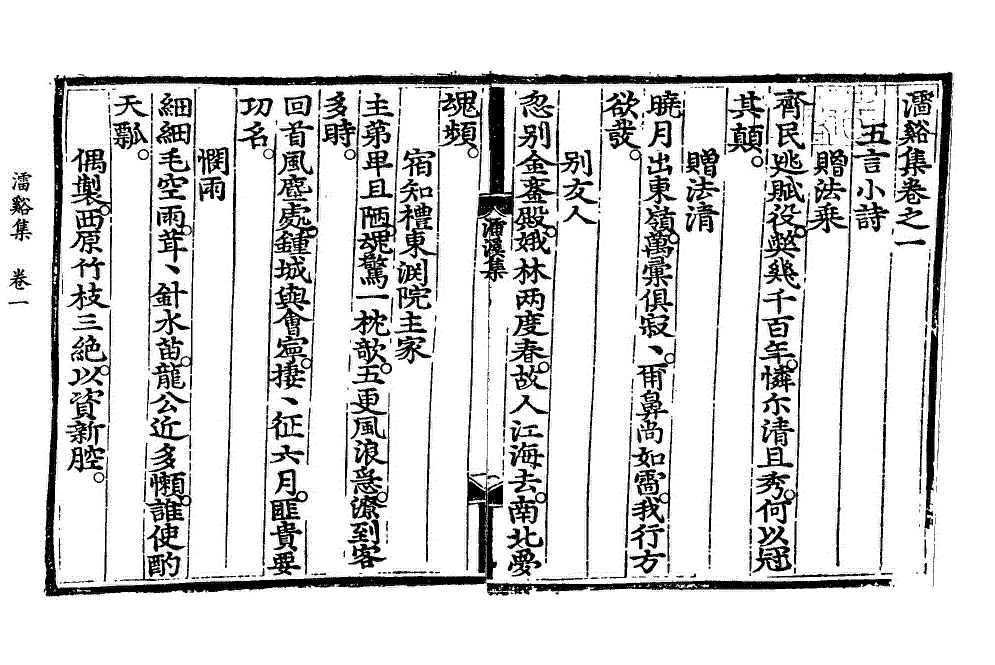 濡谿集卷之一
五言小詩
贈法乘
齊民逃賦役。弊幾千百年。憐尔清且秀。何以冠
其顛。
贈法清
曉月出東嶺。萬彙俱寂、。甭鼻尚如雷。我行方
欲發。
別友人
忽別金鑾殿。娥林两度春。故人江海去。南北夢
魂頻。
宿知禮東澗院主家
主第卑且陋。魂驚一枕欹。五更風浪急。潦到客
多時。
回首風塵處。鍾城與會寧。捿、征六月。匪貴要
功名。
憫雨
細細毛空雨。茸、針水苗。龍公近多懶。誰使酌
天瓢。
偶製。西原竹枝三絶。以資新腔。
濡谿集
濡谿集 卷一